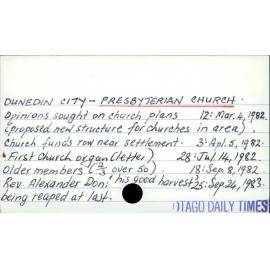 DUNEDIN CITY - PRESBYTERIAN CHURCH.
Opinions sought on church plans 12: Mar. 4, 1982.
(proposed new structure for churches in area).
Church funds row near settlement. 3: Apl. 5, 1982.
First Church organ (letter) 28: Jul. 14, 1982.
Older members (2/3 over 50). 18: Sep. 8, 1982.
Rev. Alexander Don: "his good harvest 25: Sep 24, 1983.
being reaped at last.
OTAGO DAILY TIMES